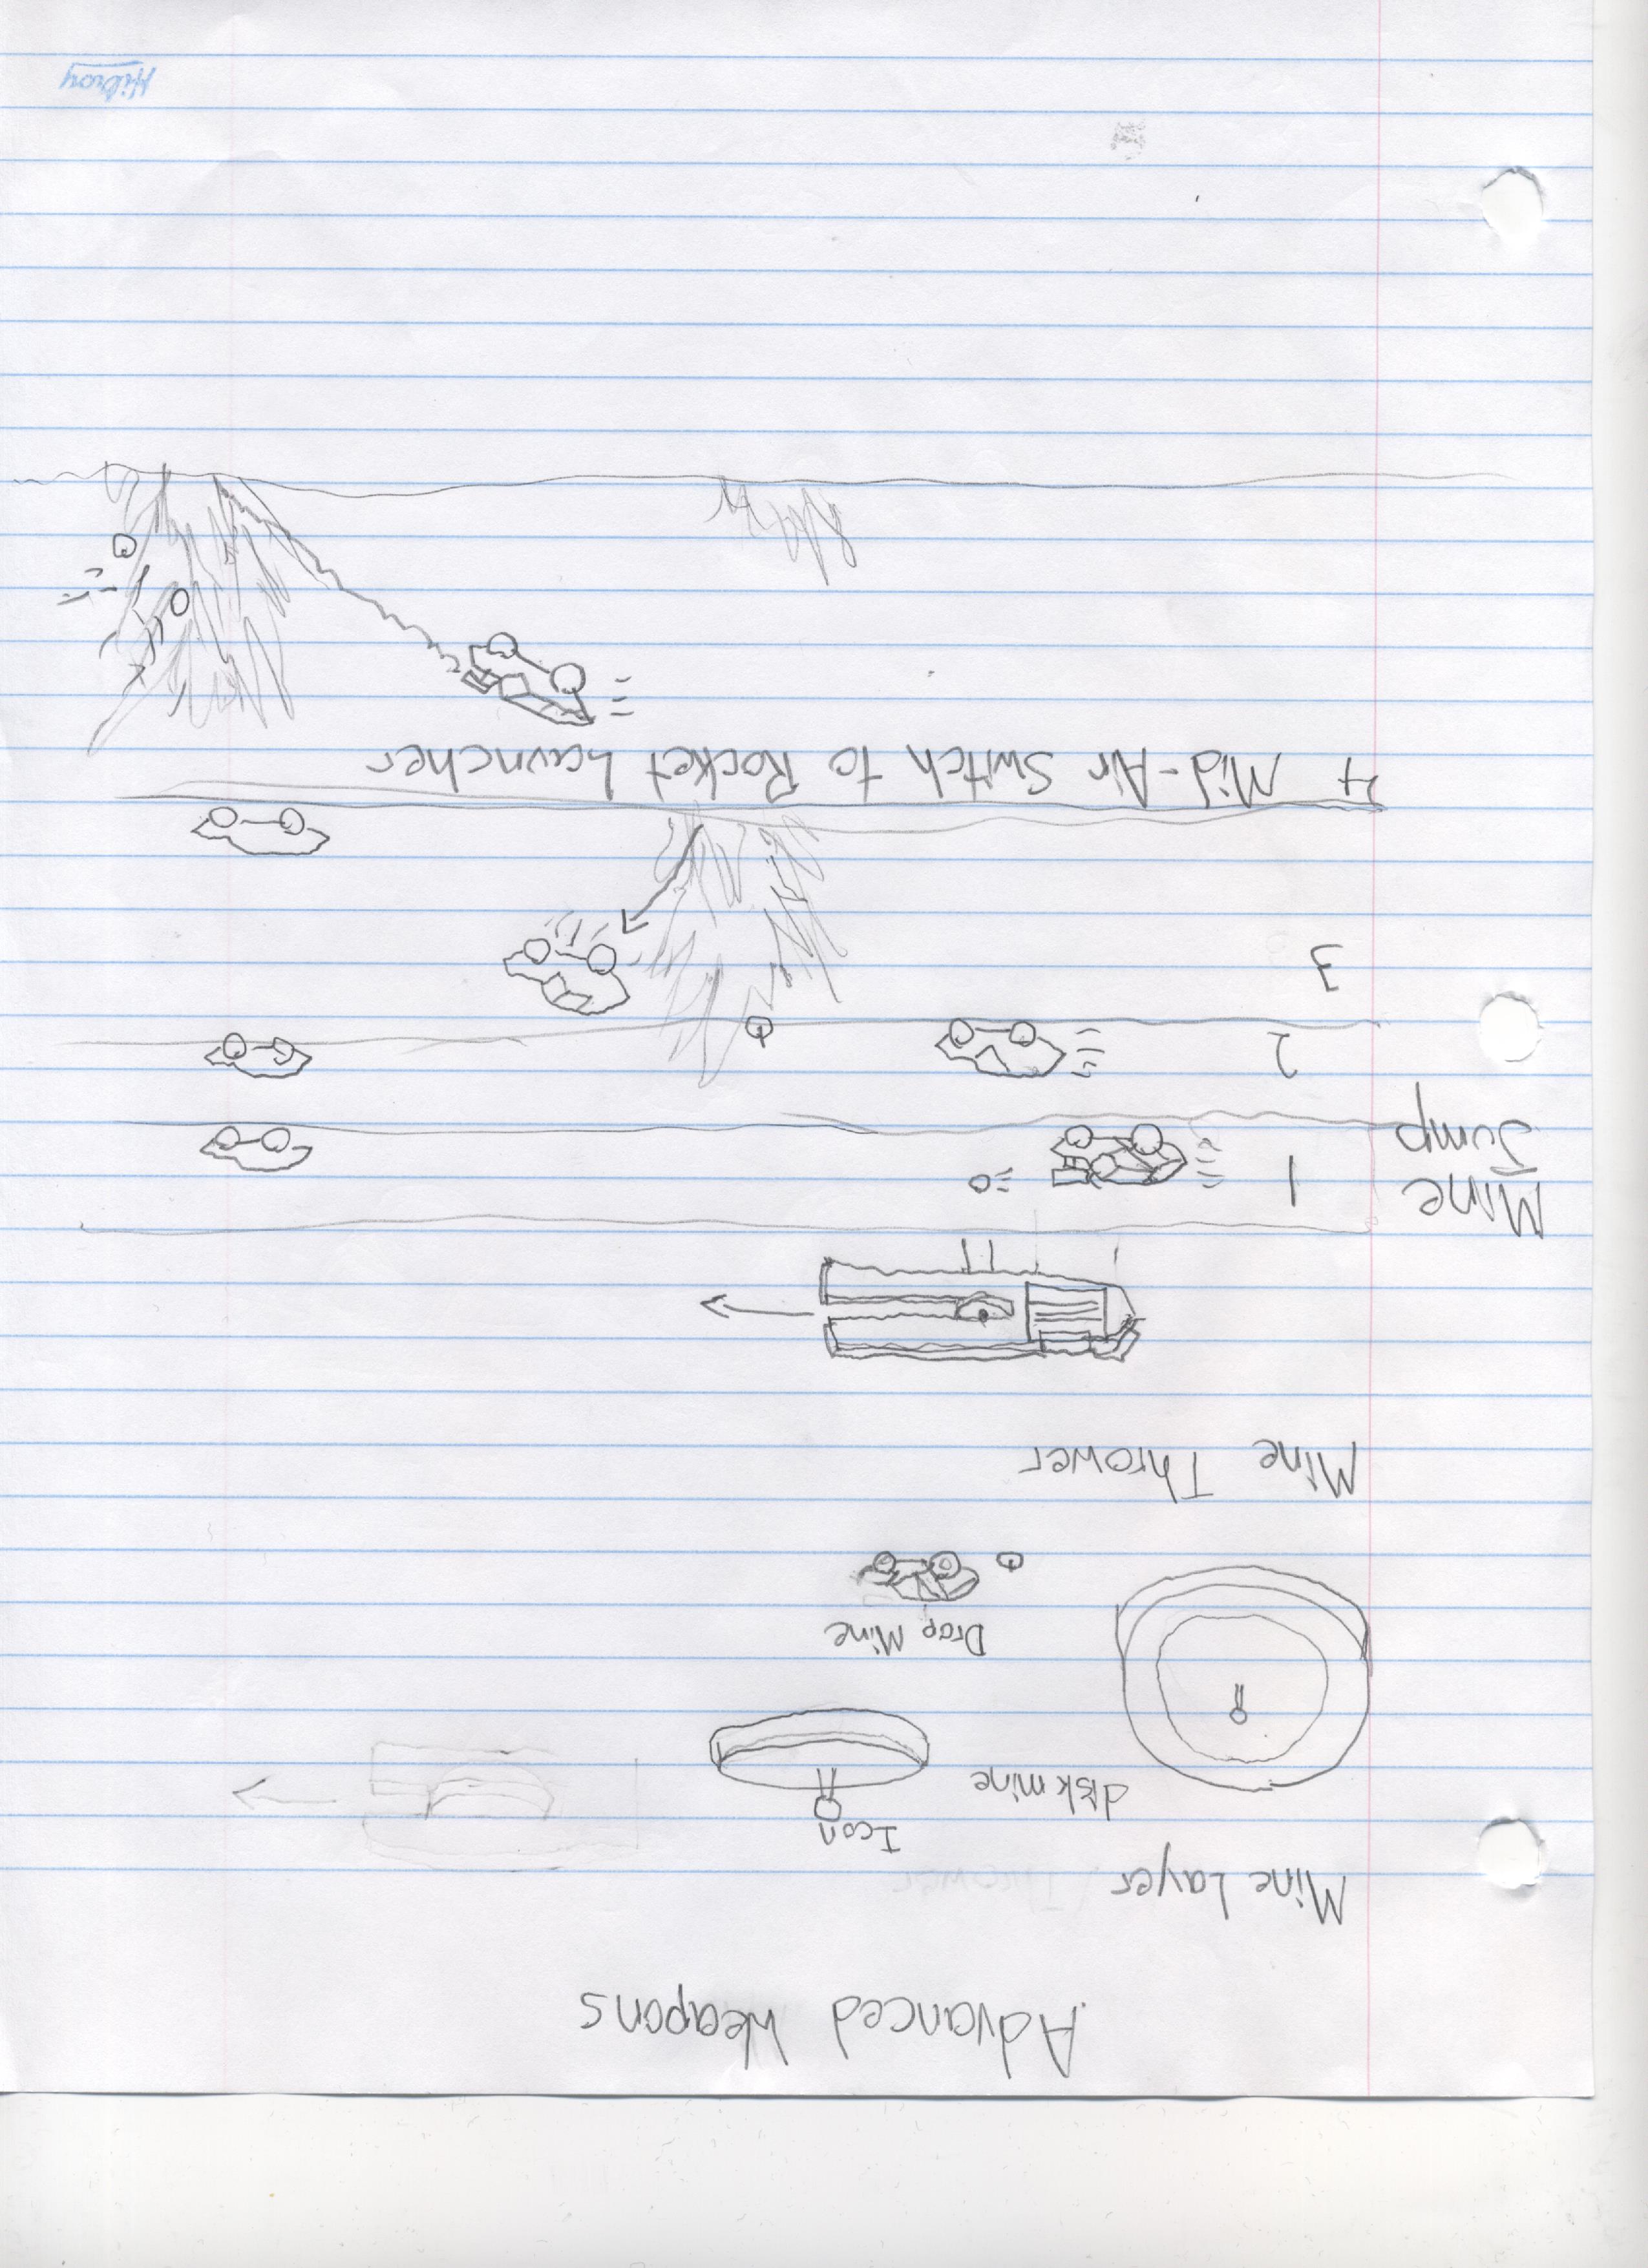 Advanced Weapons
Mine Layer
Thrower
Icon
disk mine
Drop Mine
Mine Thrower
Mine
Jump
1
2
3
4 Mid-Air Switch to Rocket Launcher
Hilroy